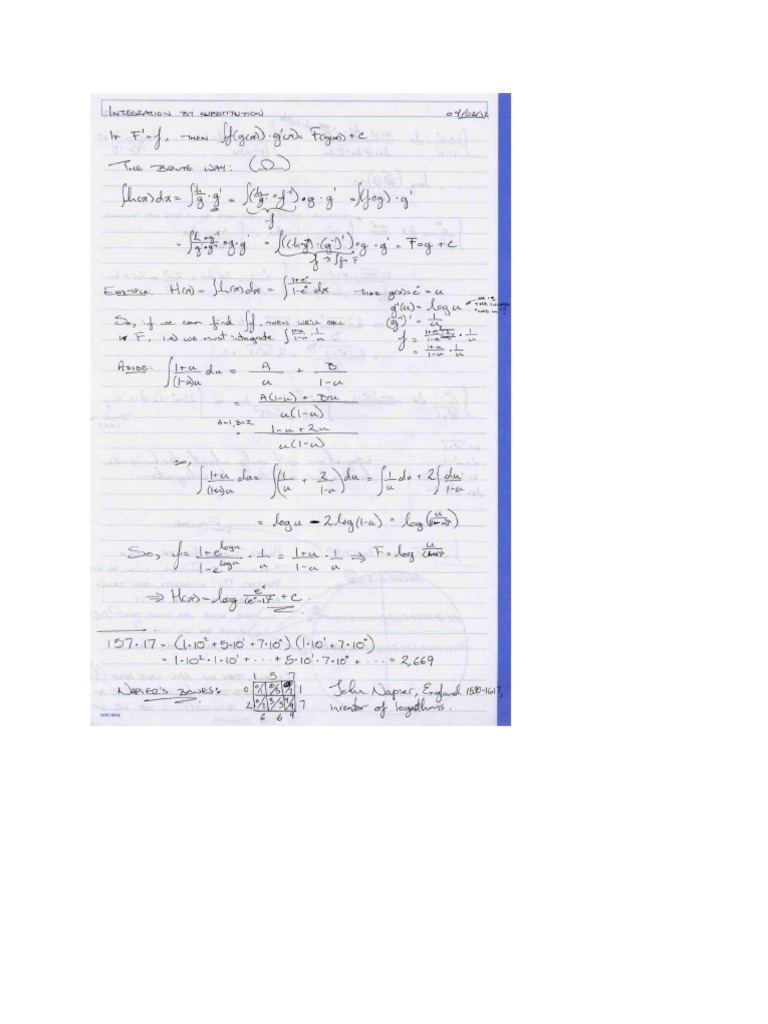 INTEGRATION BY SUBSTITUTION 07/02/12
IF F' = f, THEN ∫f(g(x))·g'(x) = F(g(x)) + C
THE BRUTE WAY: (Ω)
∫h(x)dx = ∫h/g'·g' = ∫(h/g' ∘ g⁻¹)∘g·g' = ∫(f∘g)·g'
f
= ∫(h∘g⁻¹)/(g'∘g⁻¹) ∘g·g' = ∫((h∘g⁻¹)·(g⁻¹)')∘g·g' = F∘g + C
EXAMPLE: H(x) = ∫h(x)dx = ∫(1+eˣ)/(1-eˣ) dx TAKE g(x) = eˣ = u
g⁻¹(u) = log u
So, if we can find ∫f, THEN WE'LL CALL (g⁻¹)' = 1/u
it F. i.e) we must integrate ∫(1+u)/(1-u)·1/u f = (1+e^(log u))/(1-e^(log u))·1/u
= (1+u)/(1-u)·1/u
ASIDE: ∫(1+u)/((1-u)u) du = A/u + B/(1-u)
= (A(1-u) + Bu)/(u(1-u))
A=1, B=2 = (1-u+2u)/(u(1-u))
so,
∫(1+u)/((1-u)u) du = ∫(1/u + 2/(1-u))du = ∫1/u du + 2∫du/(1-u)
= log u - 2log(1-u) = log(u/(1-u)²)
So, f = (1+e^(log u))/(1-e^(log u))·1/u = (1+u)/(1-u)·1/u ⇒ F = log u/(1-u)²
⇒ H(x) = log eˣ/(eˣ-1)² + C
157·17 = (1·10²+5·10¹+7·10⁰)(1·10¹+7·10⁰)
= 1·10²·1·10¹ + ··· + 5·10¹·7·10⁰ + ··· = 2,669
1 5 7
NAPIER'S BONES: 0 0/1 0/5 0/7 1 John Napier, England 1550-1617,
2 0/7 3/5 4/9 7 inventor of logarithms.
6 6 9